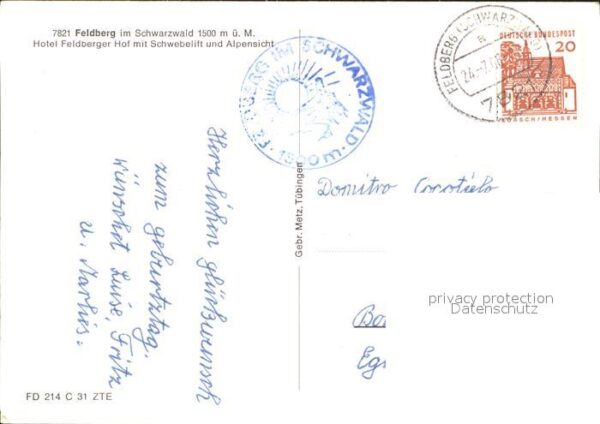 7821 Feldberg im Schwarzwald 1500 m ü. M.
Hotel Feldberger Hof mit Schwebelift und Alpensicht
FELDBERG IM SCHWARZWALD
1500 m
FELDBERG (SCHWARZWALD)
DEUTSCHE BUNDESPOST
20
LORSCH/HESSEN
Herzlichen glückwunsch
zum geburtztag.
wünschet Luise, Fritz
u. Markus.
Gebr. Metz, Tübingen
Domitro
privacy protection
Datenschutz
FD 214 C 31 ZTE